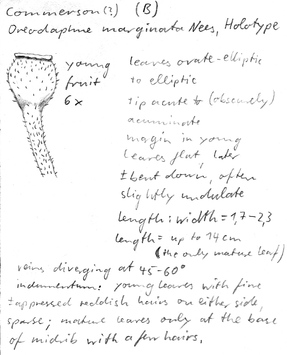 Commerson(?) (B)
Oreodaphne marginata Nees, Holotype
young leaves ovate-elliptic
fruit to elliptic
6x tip acute to (obscurely)
acuminate
margin in young
leaves flat, later
± bent down, often
slightly undulate
length : width = 1,7-2,3
length = up to 14 cm
(the only mature leaf)
veins diverging at 45-60°
indumentum: young leaves with fine
± appressed reddish hairs on either side,
sparse; mature leaves only at the base
of midrib with a few hairs.